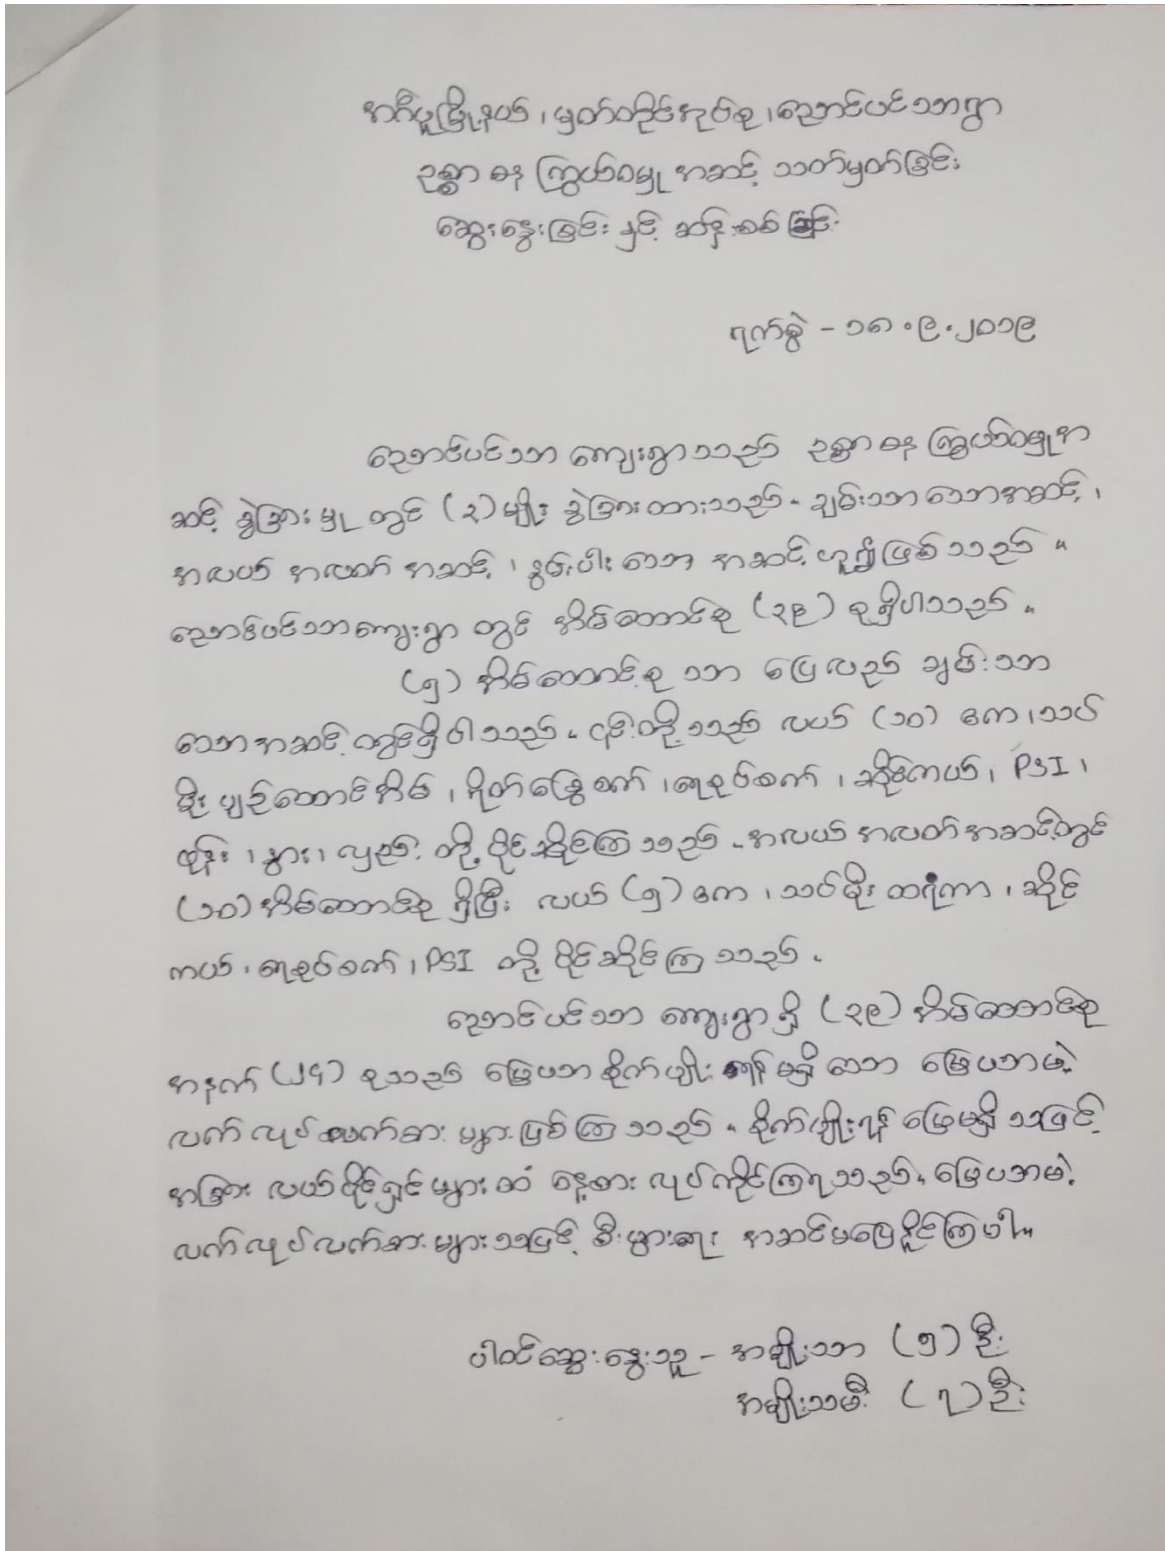 အင်္ဂပူမြို့နယ်၊ မှတ်တိုင်အုပ်စု၊ ညောင်ပင်သာရွာ
ဥစ္စာ ဓန ကြွယ်ဝမှု အဆင့် သတ်မှတ်ခြင်း
ဆွေးနွေးခြင်း နှင့် ဆန်းစစ်ခြင်း
ရက်စွဲ - ၁၈.၉.၂၀၁၉
ညောင်ပင်သာ ကျေးရွာသည် ဥစ္စာ ဓန ကြွယ်ဝမှုအ
ဆင့် ခွဲခြားမှု တွင် (၃) မျိုး ခွဲခြားထားသည်။ ချမ်းသာသောအဆင့်၊
အလယ် အလတ် အဆင့်၊ နွမ်းပါး သော အဆင့် ဟူ၍ ဖြစ် သည်။
ညောင်ပင်သာကျေးရွာ တွင် အိမ်ထောင်စု (၃၉) စု ရှိပါသည်။
(၅) အိမ်ထောင်စု သာ ပြေလည် ချမ်းသာ
သောအဆင့်တွင်ရှိပါသည်။ ၎င်းတို့သည် လယ် (၁၀) ဧက၊ သပ်
မိုး ပျဉ်ထောင်အိမ်၊ ရိုက်ခြွေစက်၊ ရေစုပ်စက်၊ ဆိုင်ကယ်၊ PSI၊
ထွန်၊ နွား၊ လှည်း တို့ ပိုင်ဆိုင်ကြသည်။ အလယ်အလတ်အဆင့်တွင်
(၁၀) အိမ်ထောင်စု ရှိပြီး လယ် (၅) ဧက၊ သပ်မိုး ထရံကာ၊ ဆိုင်
ကယ်၊ ရေစုပ်စက်၊ PSI တို့ ပိုင်ဆိုင်ကြ သည်။
ညောင်ပင်သာ ကျေးရွာ ရှိ (၃၉) အိမ်ထောင်စု
အနက် (၂၄) စုသည် မြေယာ စိုက်ပျိုး ရန် မရှိ သော မြေယာမဲ့
လက်လုပ် လက်စား များဖြစ်ကြ သည်။ စိုက်ပျိုးရန် မြေမရှိ သဖြင့်
အခြား လယ်ပိုင်ရှင်များ ထံ နေ့စား လုပ်ကိုင်ကြရသည်။ မြေယာမဲ့
လက်လုပ်လက်စားများသဖြင့် စီးပွားရေး အဆင်မပြေနိုင်ကြပါ။
ပါဝင်ဆွေးနွေးသူ - အမျိုးသား (၅) ဦး
အမျိုးသမီး (၇) ဦး